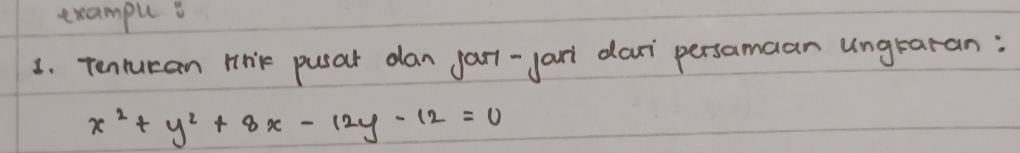 example :
1. Tentukan titik pusat dan jari-jari dari persamaan lingkaran :
x² + y² + 8x - 12y - 12 = 0